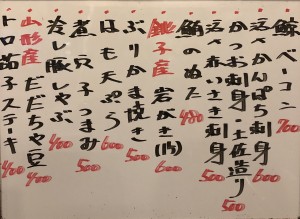 鯨ベーコン 700
活〆かんぱち刺身 600
かつお刺身・土佐造り 500
活〆赤いさき刺身 500
鮪のぬた 480
銚子産 岩がき(1ヶ) 600
ぶりかま焼き 500
はも天ぷら 600
煮穴子つまみ 500
冷し豚しゃぶ 400
山形産 だだちゃ豆 400
トロ茄子ステーキ 400